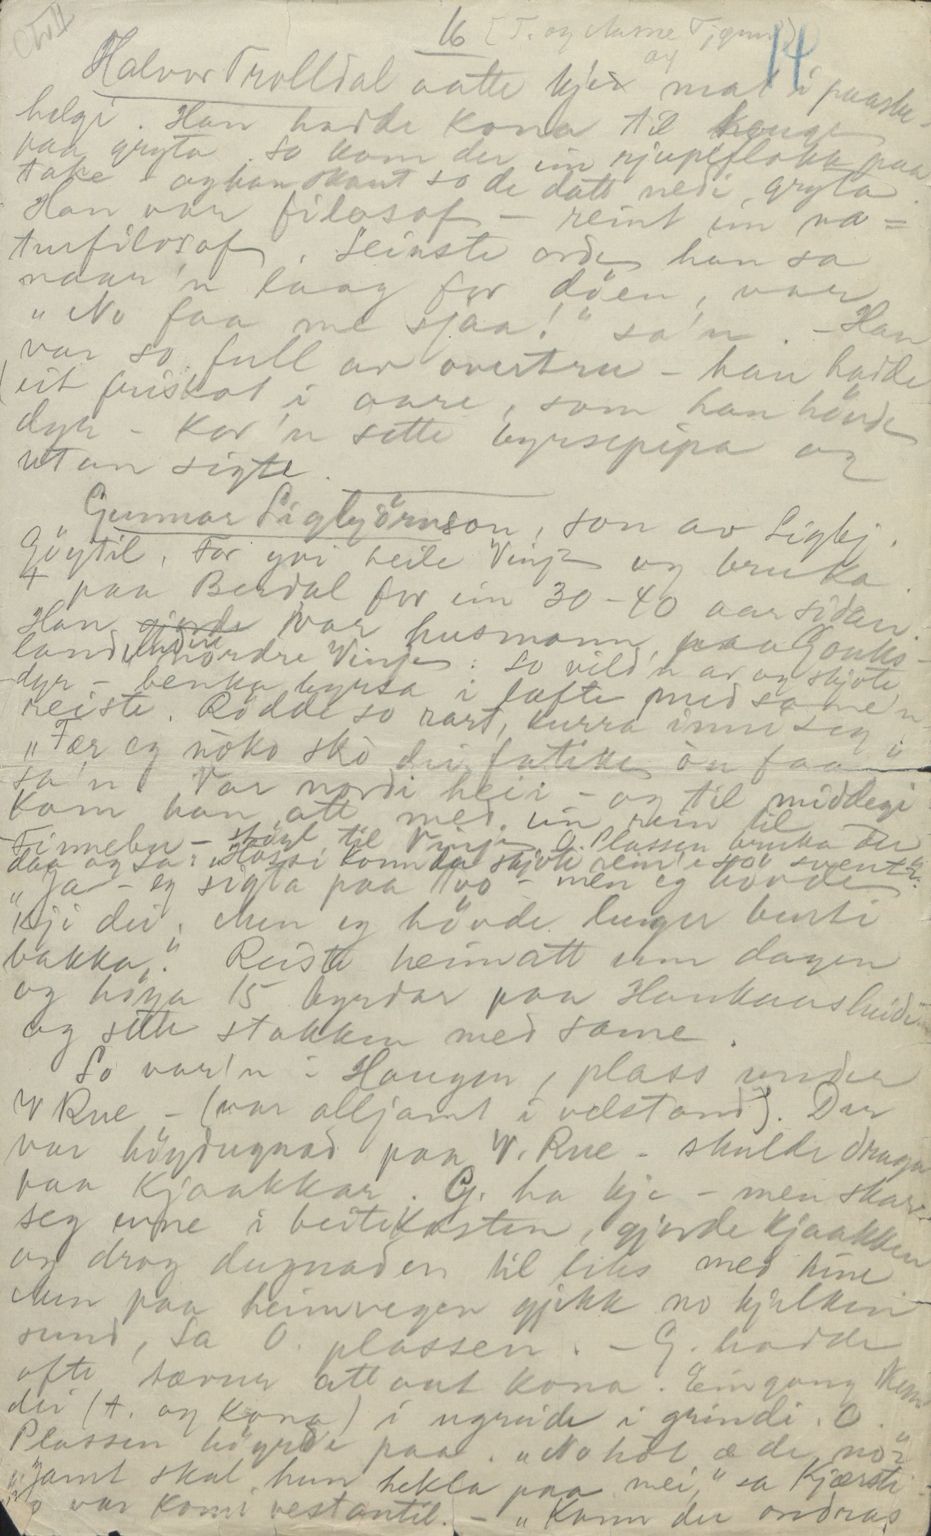 16
14
Halvor Trolldal aatte kje mat i paaske-
helgi. Han hadde kona til hengje
paa gryta. So kom der ein rjupeflokk paa
take - og han skaut so de datt nedi gryta.
Han var filosof - reint ein na=
turfilosof. Seinste orde han sa
naar'n laag for döen, var
"No faa me sjaa!" sa'n. - Han
var so full av overtru - han hadde
eit friskot i aare, som han hövde
dyr - kor'n sette byrsepipa og
utan sigte.
Gunnar Sigbjörnson, son av Sigbj.
Göytil. For yvi heile Vinje og bruka
paa Berdal for ein 30-40 aar sidan.
Han var husmann paa Gouks-
land, nordre Vinje. So vild'n av og skjote
dyr - benka byrsa i lofte med same'n
reiste. Rödde so rart, kurra inni seg
"Fær eg noko skò dei fatike òn faa"
sa'n. Var nordi heii - og til middegi
kom han att med ein rein til
Finnebu - til Vinje. O. Plassen bruka der
dag og sa: "Hossi konn du skjote rein'e so
"Ja - eg sigta paa tvo - men eg hövde
kji dei. Men eg hövde lenger burti
bakka." Reiste heimatt um dagen
og höya 15 byrdar paa Haukaasheidi
og sette stakken med same.
So var'n i Haugen, plass under
V Rue - (var alljamt i velstand). Der
var höydugnad paa V. Rue - skulde draga
paa kjaakkar. G. ha kje - men skar
seg inne i beitekosten, gjorde kjaakken
og drog dugnaden til liks med hine
Men paa heimvegen gjekk no kjelken
sund, sa O. plassen. - G. hadde
ofte tævur att aat kona. Eingong kom
dei (G. og kona) i ugreide i grindi. O.
Plassen höyrde paa. "No hòt æ de, no"
"Jamt skal hun hekla paa mei," sa Kjærsti
o var komi vestantil. - "Kann du ondras